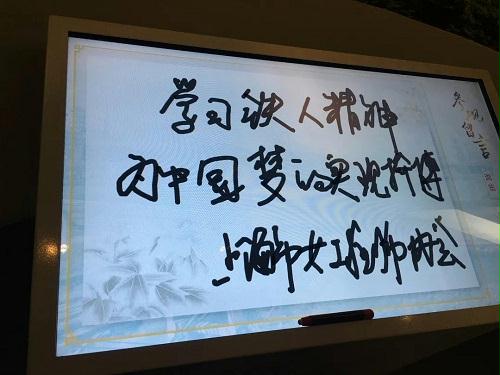 学习铁人精神
为中国梦的实现拼搏
上海市女工程师协会
参观留言